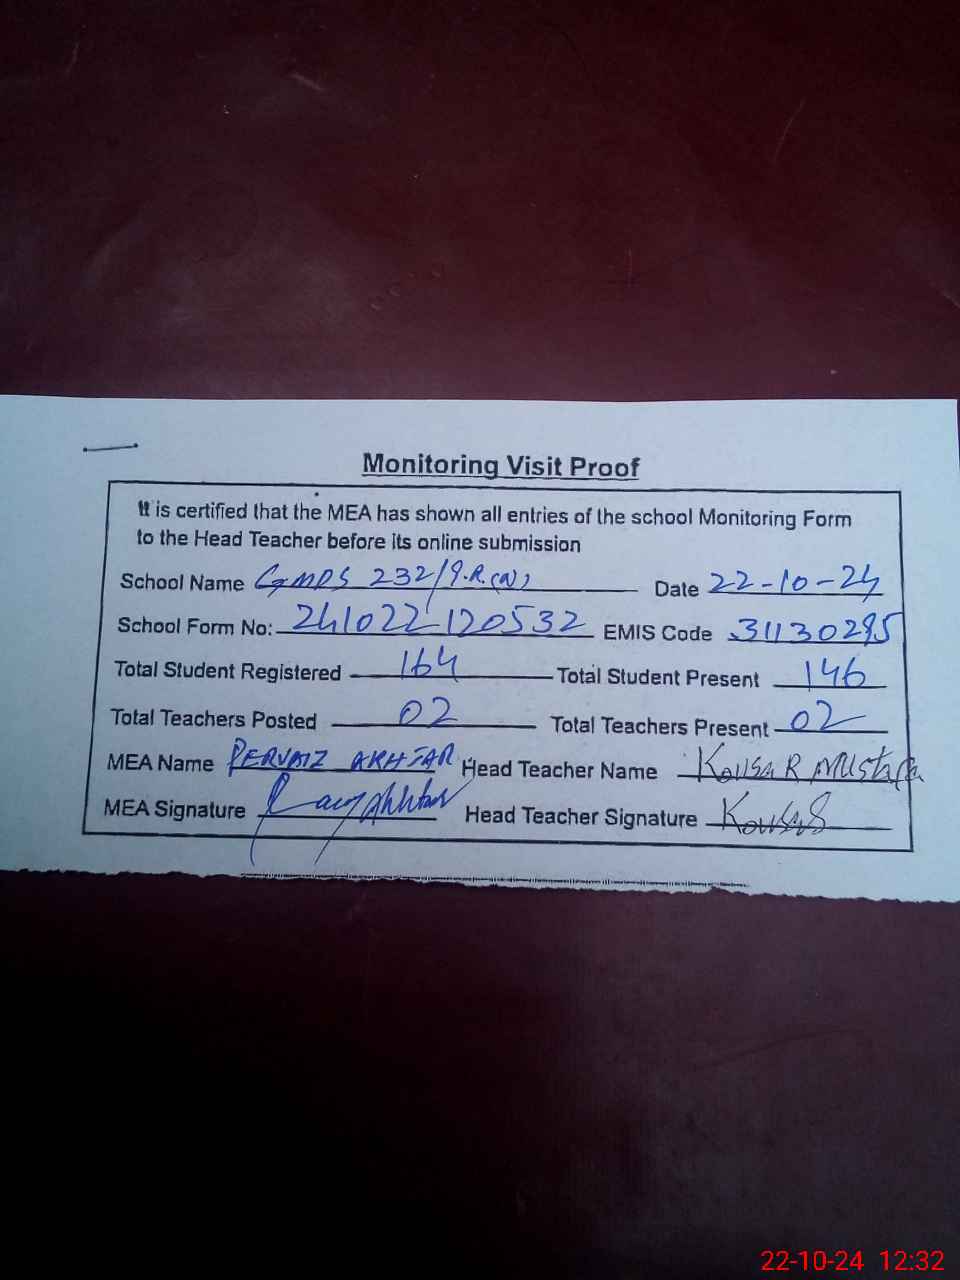 Monitoring Visit Proof
It is certified that the MEA has shown all entries of the school Monitoring Form
to the Head Teacher before its online submission
School Name GMPS 232/9.R.(W) Date 22-10-24
School Form No: 241022120532 EMIS Code 31130295
Total Student Registered 164 Total Student Present 146
Total Teachers Posted 02 Total Teachers Present 02
MEA Name PERVAIZ AKHTAR Head Teacher Name KousaR Mustafa
MEA Signature Head Teacher Signature
22-10-24 12:32